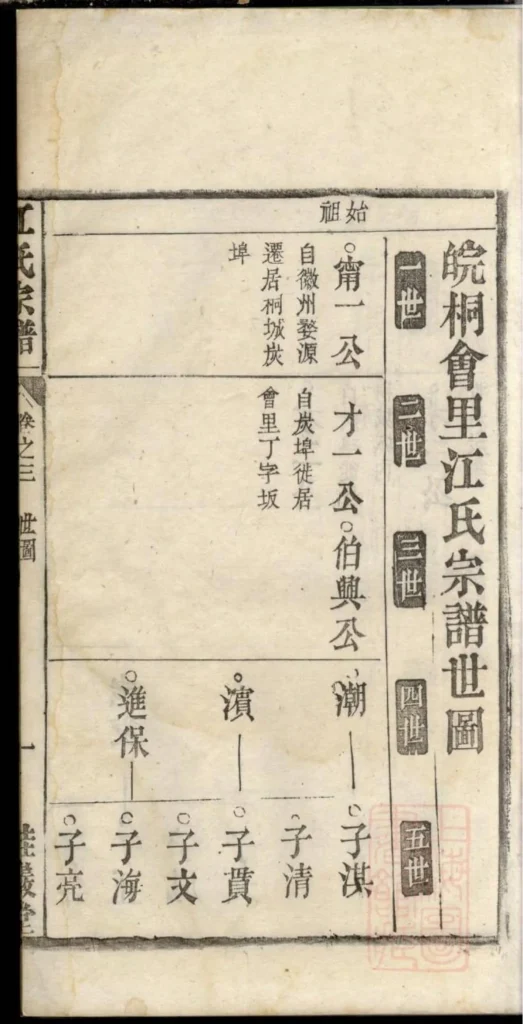 皖桐會里江氏宗譜世圖
一世
二世
三世
四世
五世
始祖
甯一公
自徽州婺源
遷居桐城炭
埠
才一公
自炭埠徙居
會里丁字坂
伯興公
潮
濱
進保
子淇
子清
子貫
子文
子海
子亮
江氏宗譜
卷之三
世圖
一